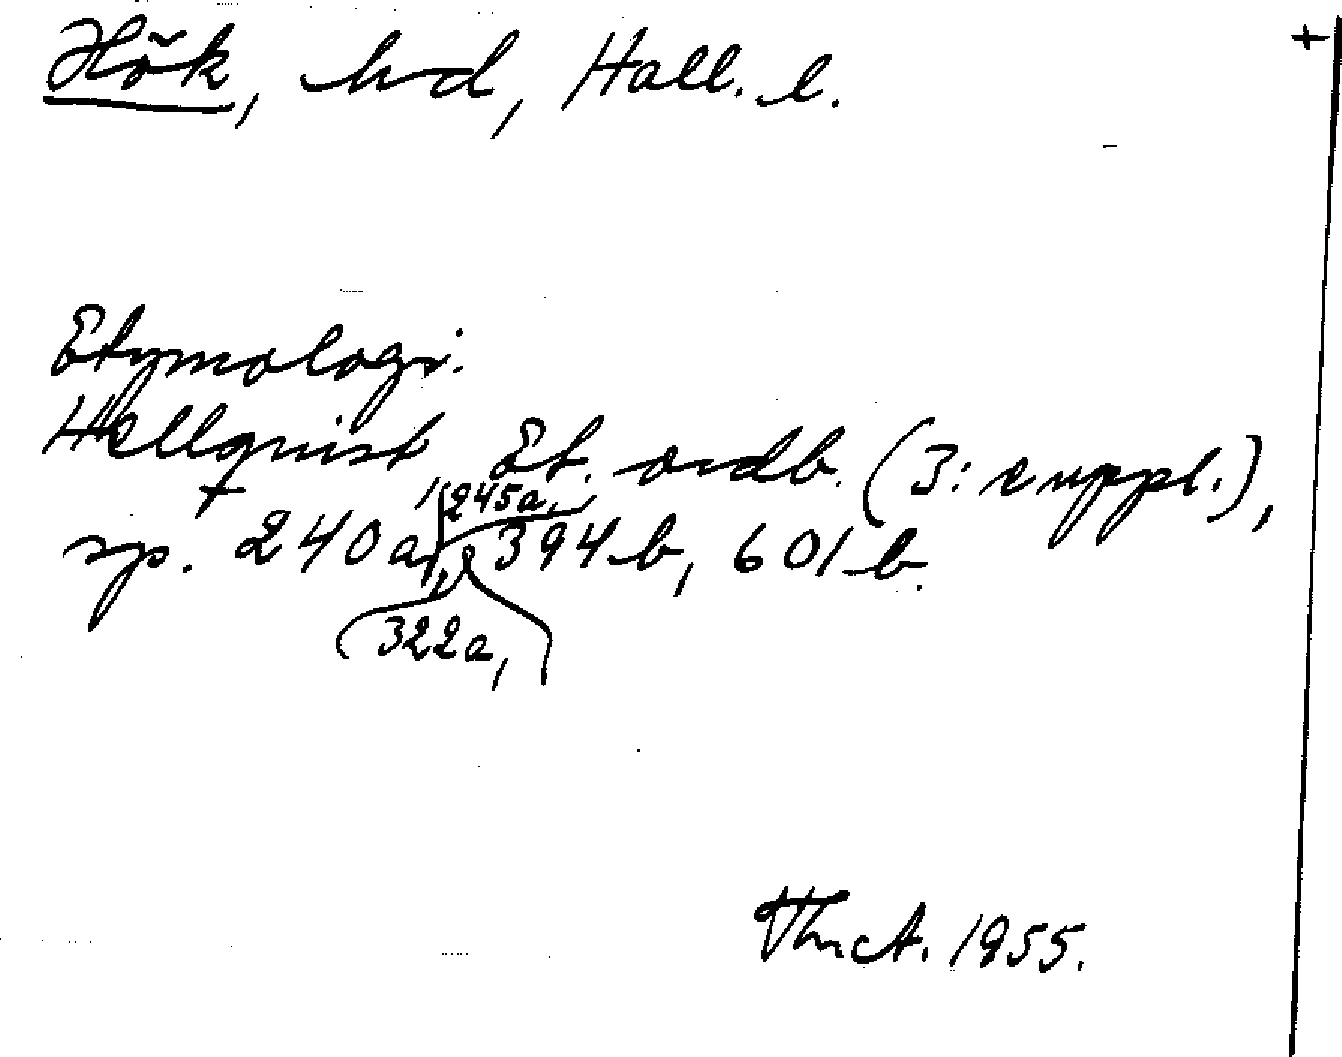 Hök, hd, Hall. l. +
Etymologi.
Hellquist Et. ordb. (3: suppl.),
sp. 240a, 245a, 322a, 394b, 601b.
1955.